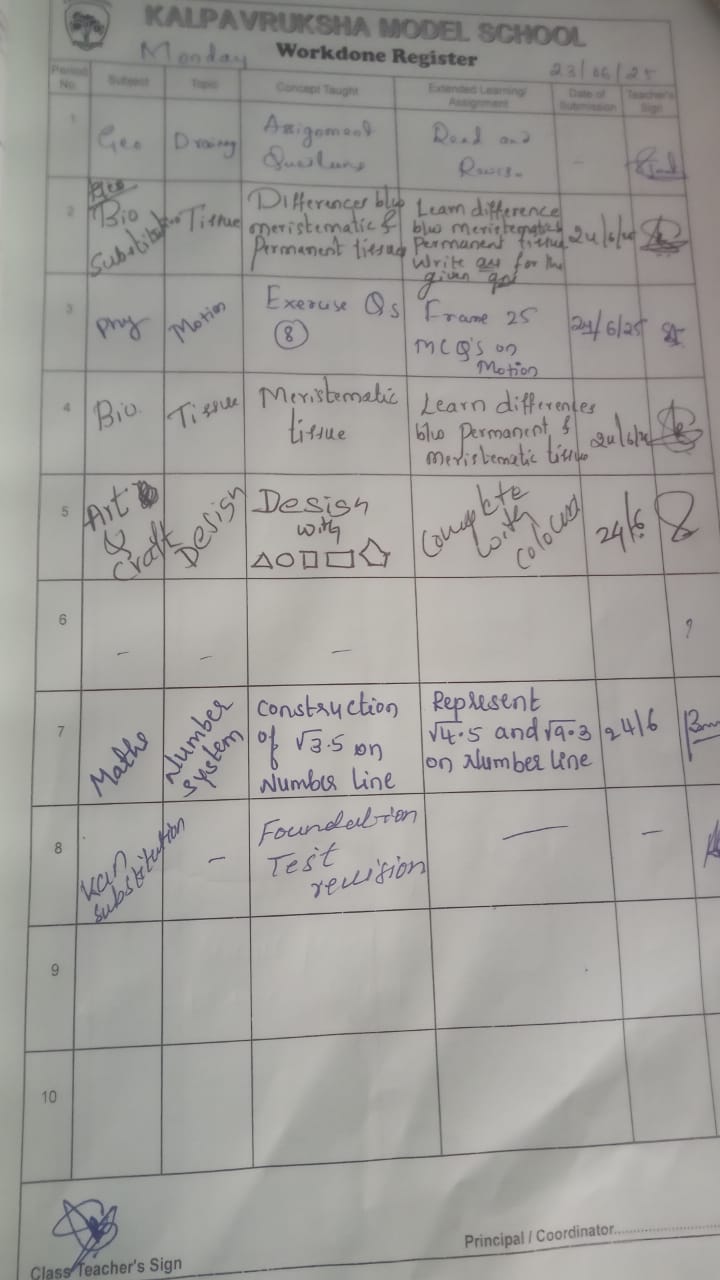 KALPAVRUKSHA MODEL SCHOOL
Workdone Register
Monday
23/06/25
Period No.
Subject
Topic
Concept Taught
Extended Learning/
Assignment
Date of
Submission
Teacher's
Sign
1
Geo
Assignment
Questions
Read and
-
2
Bio
Substitution
Tissue
Differences b/w
meristematic &
Permanent tissue
Learn difference
b/w meristematic &
Permanent tissue
Write for the
given
24/6/25
3
Phy
Motion
Exercise Qs
8
Frame 25
MCQ's on
Motion
24/6/25
4
Bio
Tissue
Meristematic
tissue
Learn differences
b/w Permanent &
meristematic tissue
24/6/25
5
Art
&
Craft
Design
Design
with
Complete
with
colours
24/6
6
-
-
-
7
Maths
Number
system
Construction
of √3.5 on
Number line
Represent
√4.5 and √9.3
on Number line
24/6
8
Kan
substitution
-
Foundation
Test
revision
-
-
9
10
Class Teacher's Sign
Principal / Coordinator